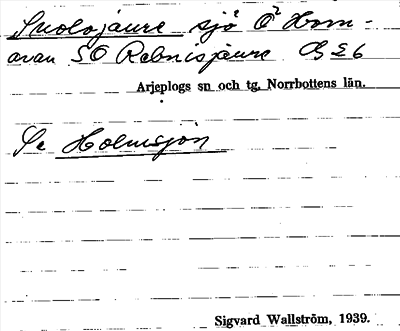 Suolojaure sjö Ö Horn-
avan SO Rebnisjaure
Arjeplogs sn och tg, Norrbottens län.
Se Holmsjön
Sigvard Wallström, 1939.